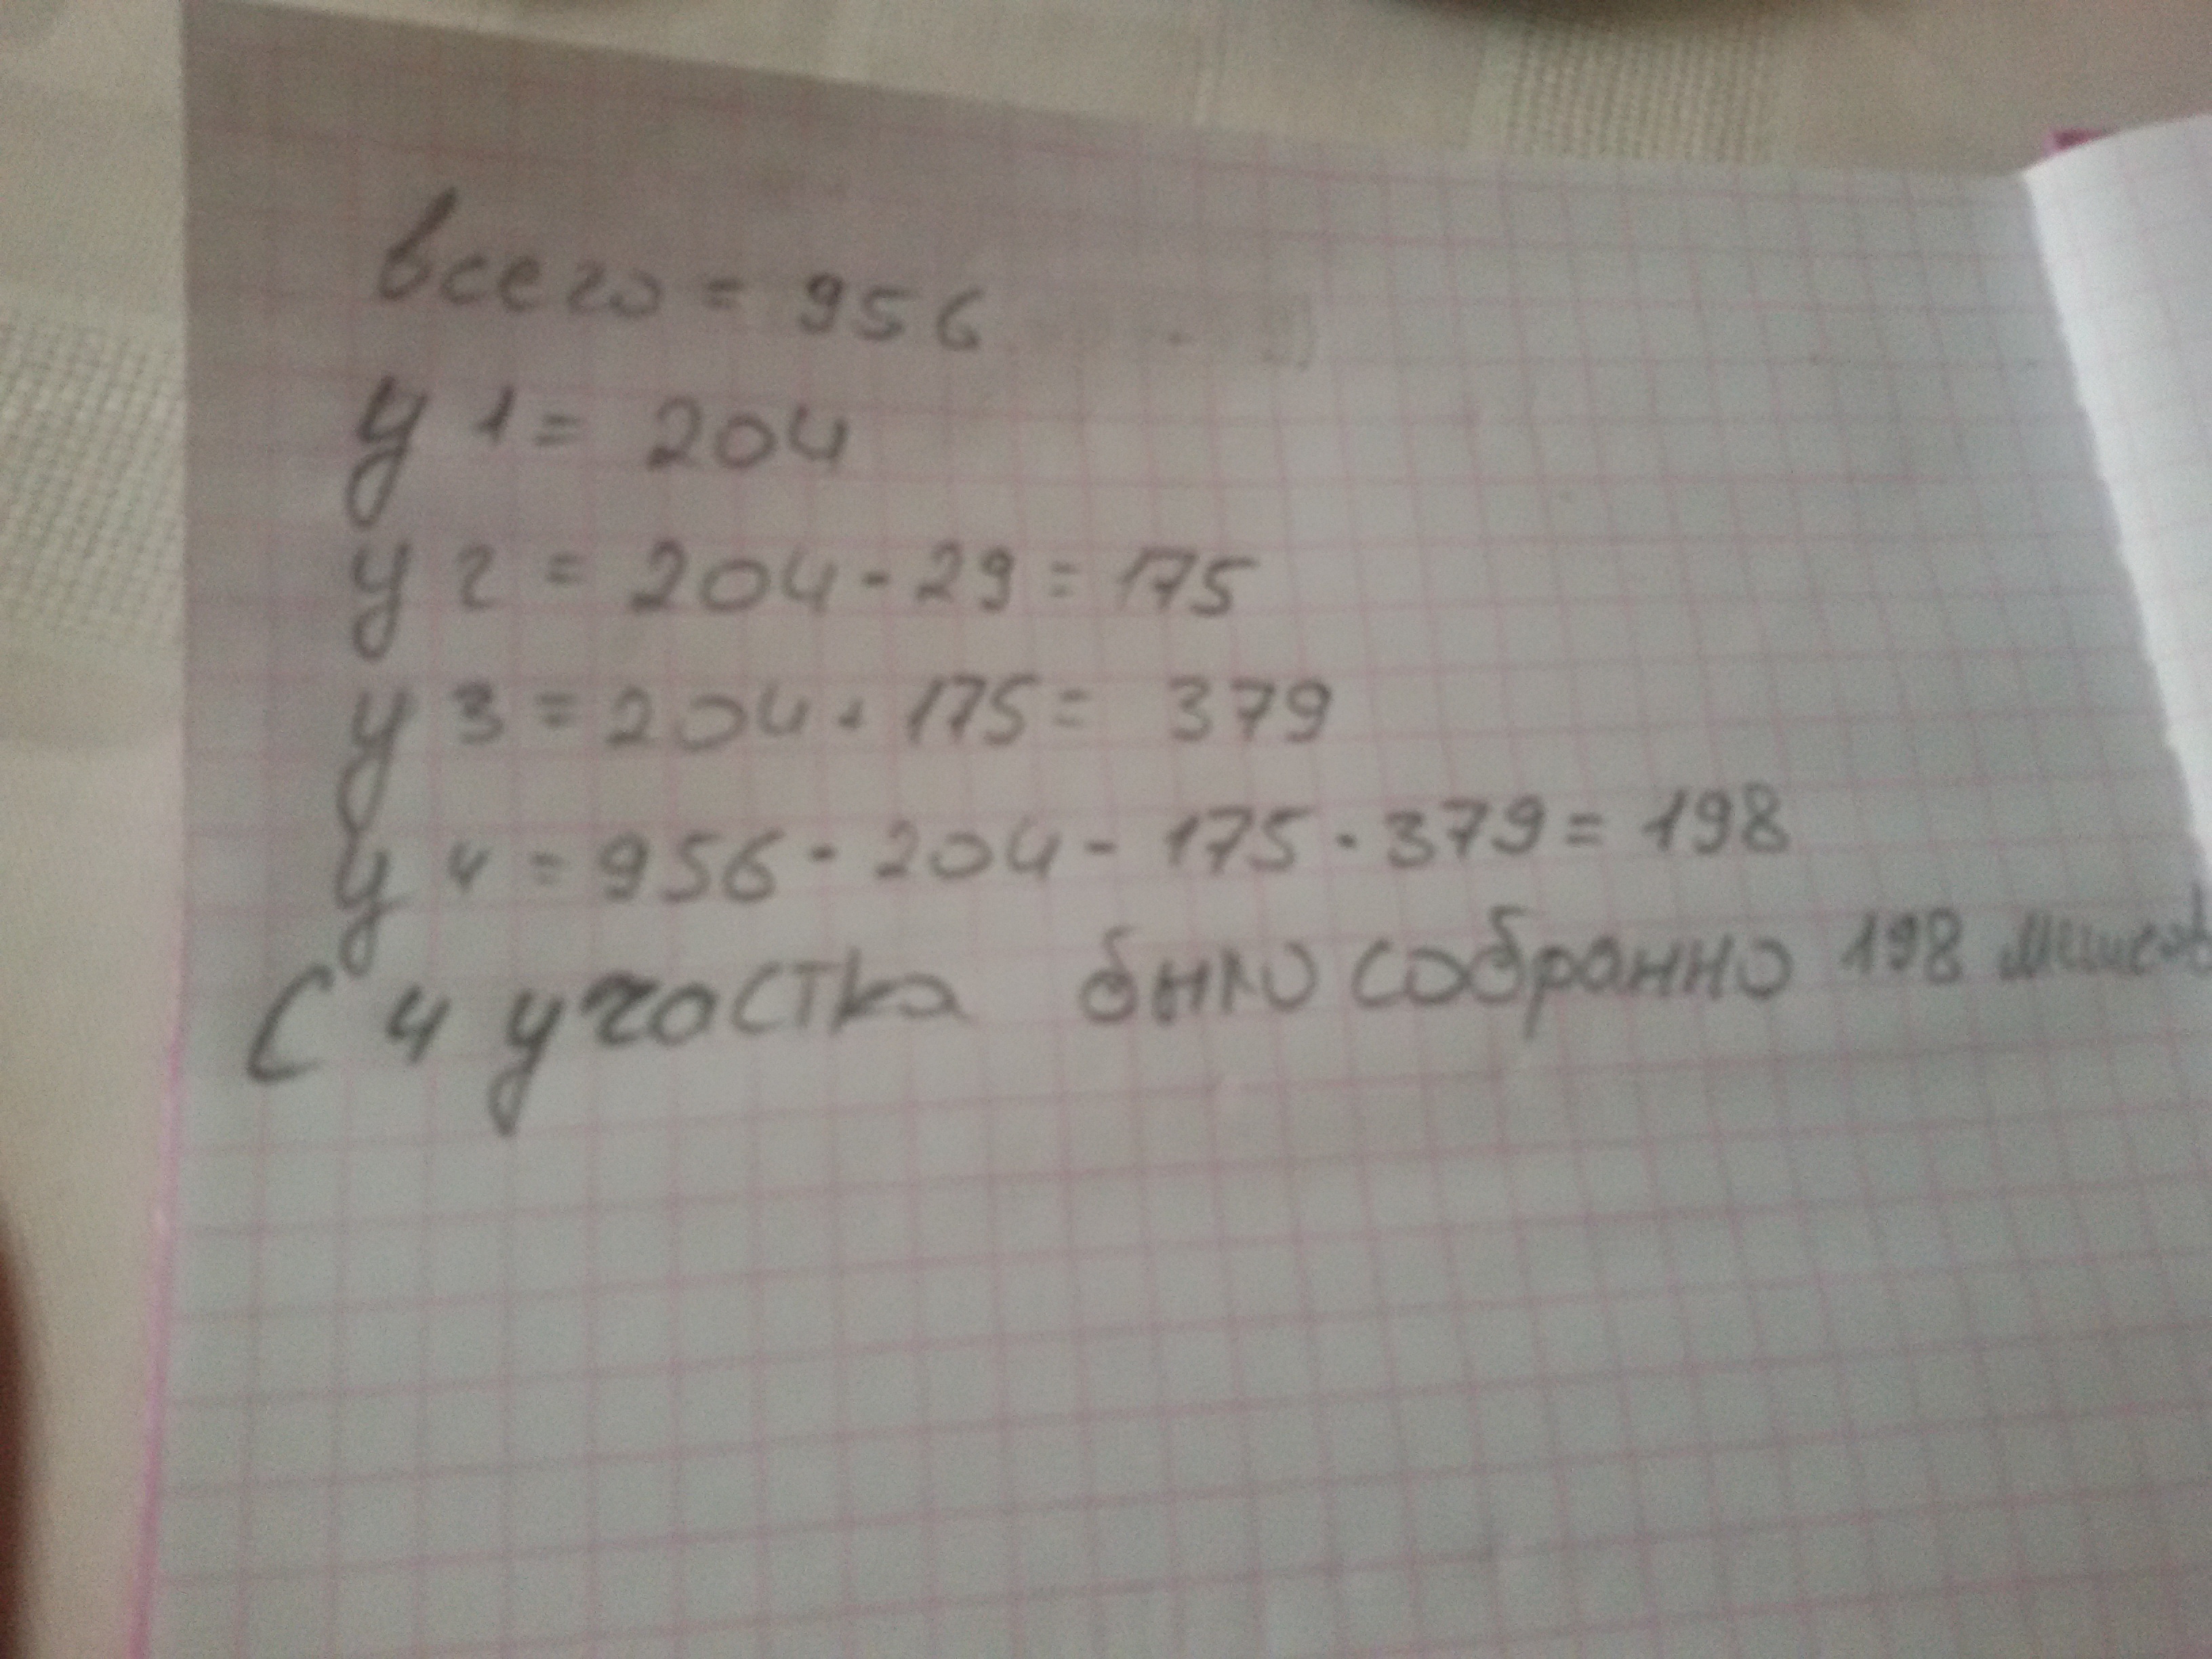 всего = 956
у 1 = 204
у 2 = 204 - 29 = 175
у 3 = 204 + 175 = 379
у 4 = 956 - 204 - 175 - 379 = 198
С 4 участка было собранно 198